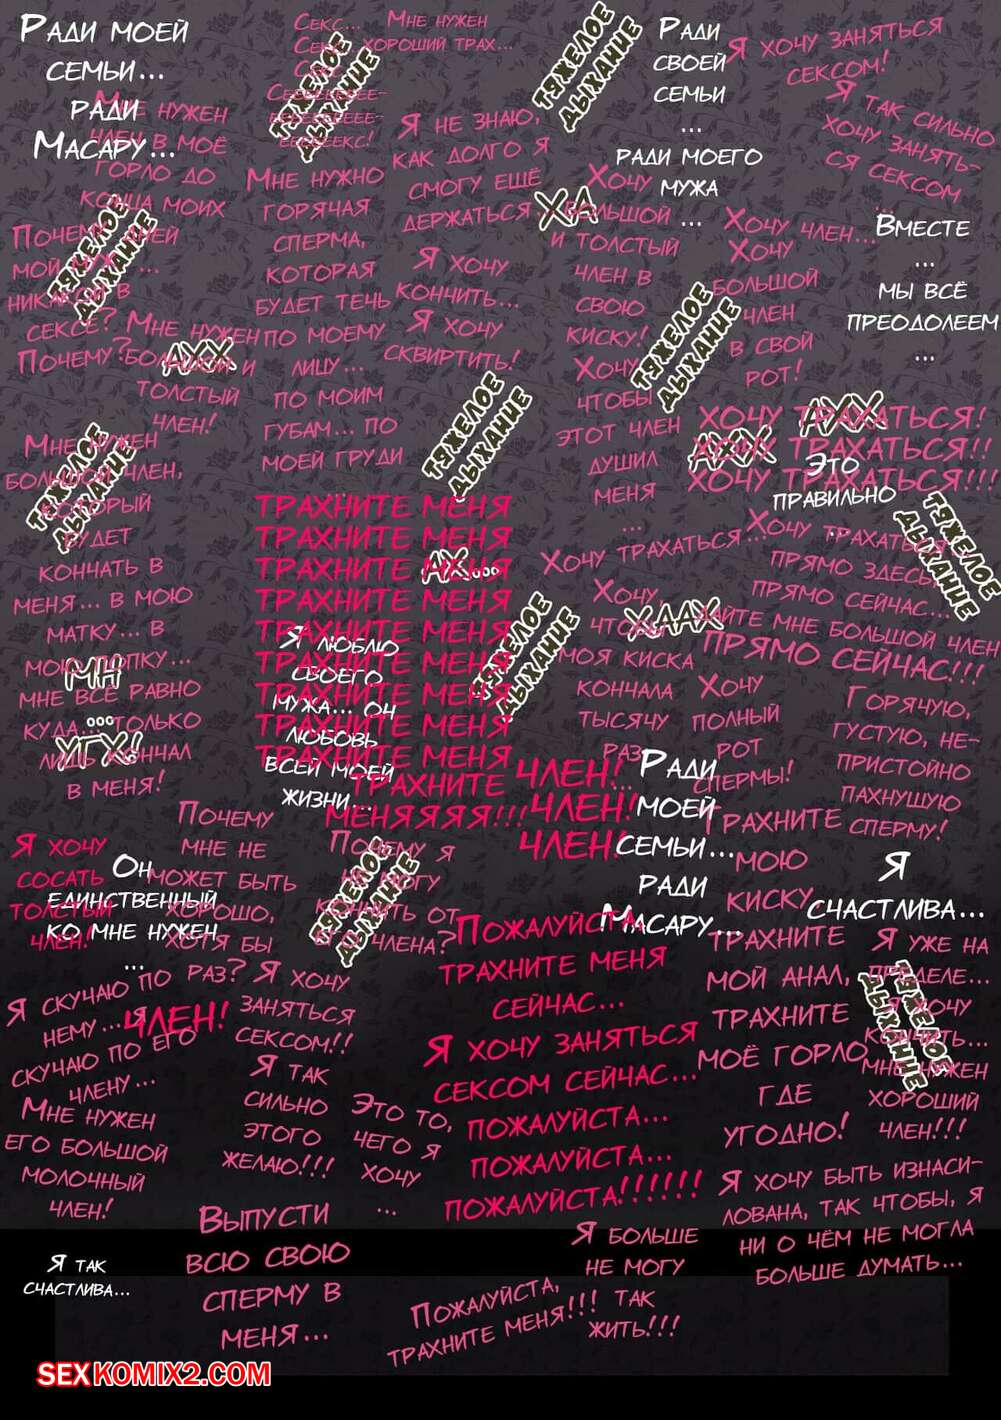 Ради моей
семьи...
ради
Масару...
Мне нужен
член в моё
горло до
конца моих
дней
Почему
мой муж...
никакой в
сексе?
Почему?
Мне нужен
большой и
толстый
член!
Мне нужен
большой член,
который
будет
кончать в
меня... в мою
матку... в
мою попку...
мне всё равно
куда... только
лишь кончал
в меня!
Секс...
Секс...
Секс...
Сеееееееее-
еееееееееее-
ееееееекс!
Мне нужен
хороший трах...
Мне нужно
горячая
сперма,
которая
будет течь
по моему
лицу...
по моим
губам... по
моей груди
Я не знаю,
как долго я
смогу ещё
держаться...
Я хочу
кончить...
Я хочу
сквиртить!
Ради
своей
семьи
...
ради моего
мужа
...
Хочу
большой
и толстый
член в
свою
киску!
Хочу
чтобы
этот член
душил
меня
...
Я хочу заняться
сексом!
Я так сильно
хочу занять-
ся сексом
...
Хочу член...
Хочу
большой
член
в свой
рот!
Вместе
...
мы всё
преодолеем
...
тяжелое
дыхание
тяжелое
дыхание
тяжелое
дыхание
тяжелое
дыхание
тяжелое
дыхание
тяжелое
дыхание
тяжелое
дыхание
тяжелое
дыхание
тяжелое
дыхание
тяжелое
дыхание
ХА
АХХ
АХХ
АХ...
ХААХ
МН
...
УГХ!
хочу трахаться!
хочу трахаться!!
хочу трахаться!!!
Это
правильно
трахните меня
трахните меня
трахните меня
трахните меня
трахните меня
трахните меня
трахните меня
трахните меня
трахните меня
трахните
меняяяя!!!
Я люблю
своего
мужа... он
любовь
всей моей
жизни...
член!...
член!
член!
Хочу трахаться...
Хочу,
чтобы
моя киска
кончала
тысячу
раз
Хочу трахаться
прямо здесь
прямо сейчас...
дайте мне большой член
прямо сейчас!!!
Хочу
полный
рот
спермы!
Горячую,
густую, не-
пристойно
пахнущую
сперму!
Ради
моей
семьи...
ради
Масару...
Трахните
мою
киску
трахните
мой анал,
трахните
моё горло
где
угодно!
Я
счастлива...
Я хочу
сосать
толстый
член!
Он
единственный
ко мне нужен
...
Почему
мне не
может быть
хорошо,
хотя бы
раз?
Почему я
не могу
кончить от
его члена?
Пожалуйста
трахните меня
сейчас...
Я хочу заняться
сексом сейчас...
пожалуйста...
пожалуйста...
пожалуйста!!!!!!
Я уже на
пределе...
я хочу
кончить...
мне нужен
хороший
член!!!
Я скучаю по
нему... я
скучаю по его
члену...
член!
Я хочу
заняться
сексом!!
Я так
сильно
этого
желаю!!!
Это то,
чего я
хочу
...
Мне нужен
его большой
молочный
член!
Я хочу быть изнаси-
лована, так чтобы, я
ни о чём не могла
больше думать...
Выпусти
всю свою
сперму в
меня...
Я больше
не могу
так
жить!!!
Я так
счастлива...
Пожалуйста,
трахните меня!!!
SEXKOMIX2.COM